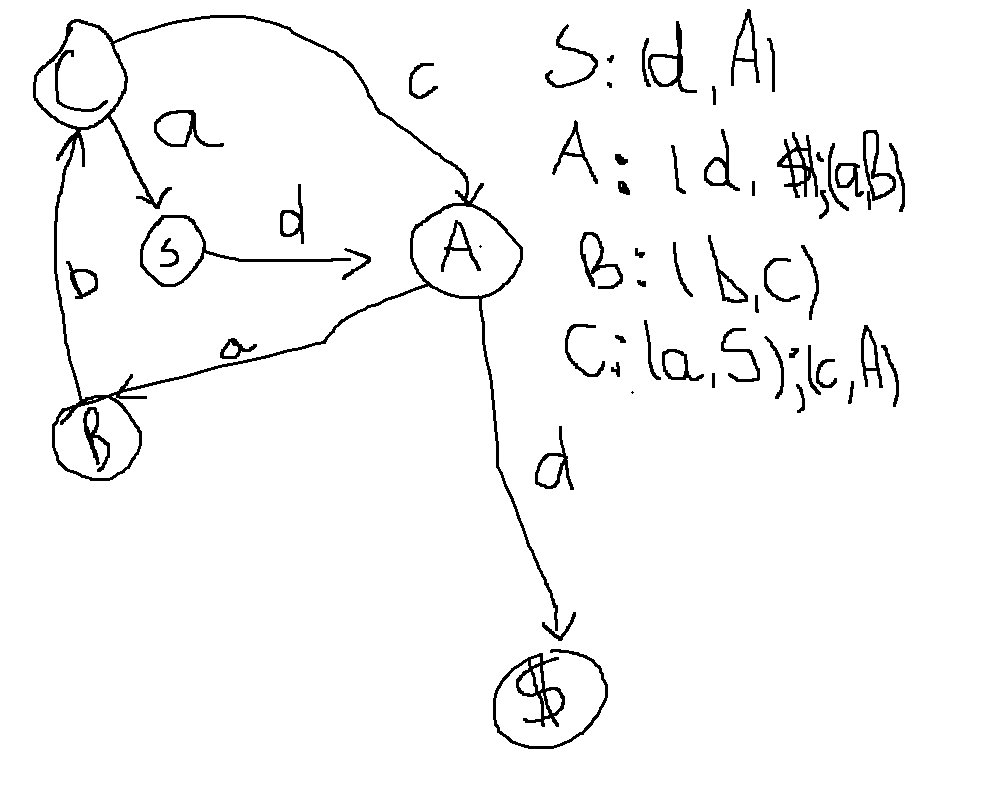 C
c
a
S
d
A
b
a
B
d
$
S: (d, A)
A: (d, $);(a,B)
B: (b,C)
C: (a,S);(c,A)